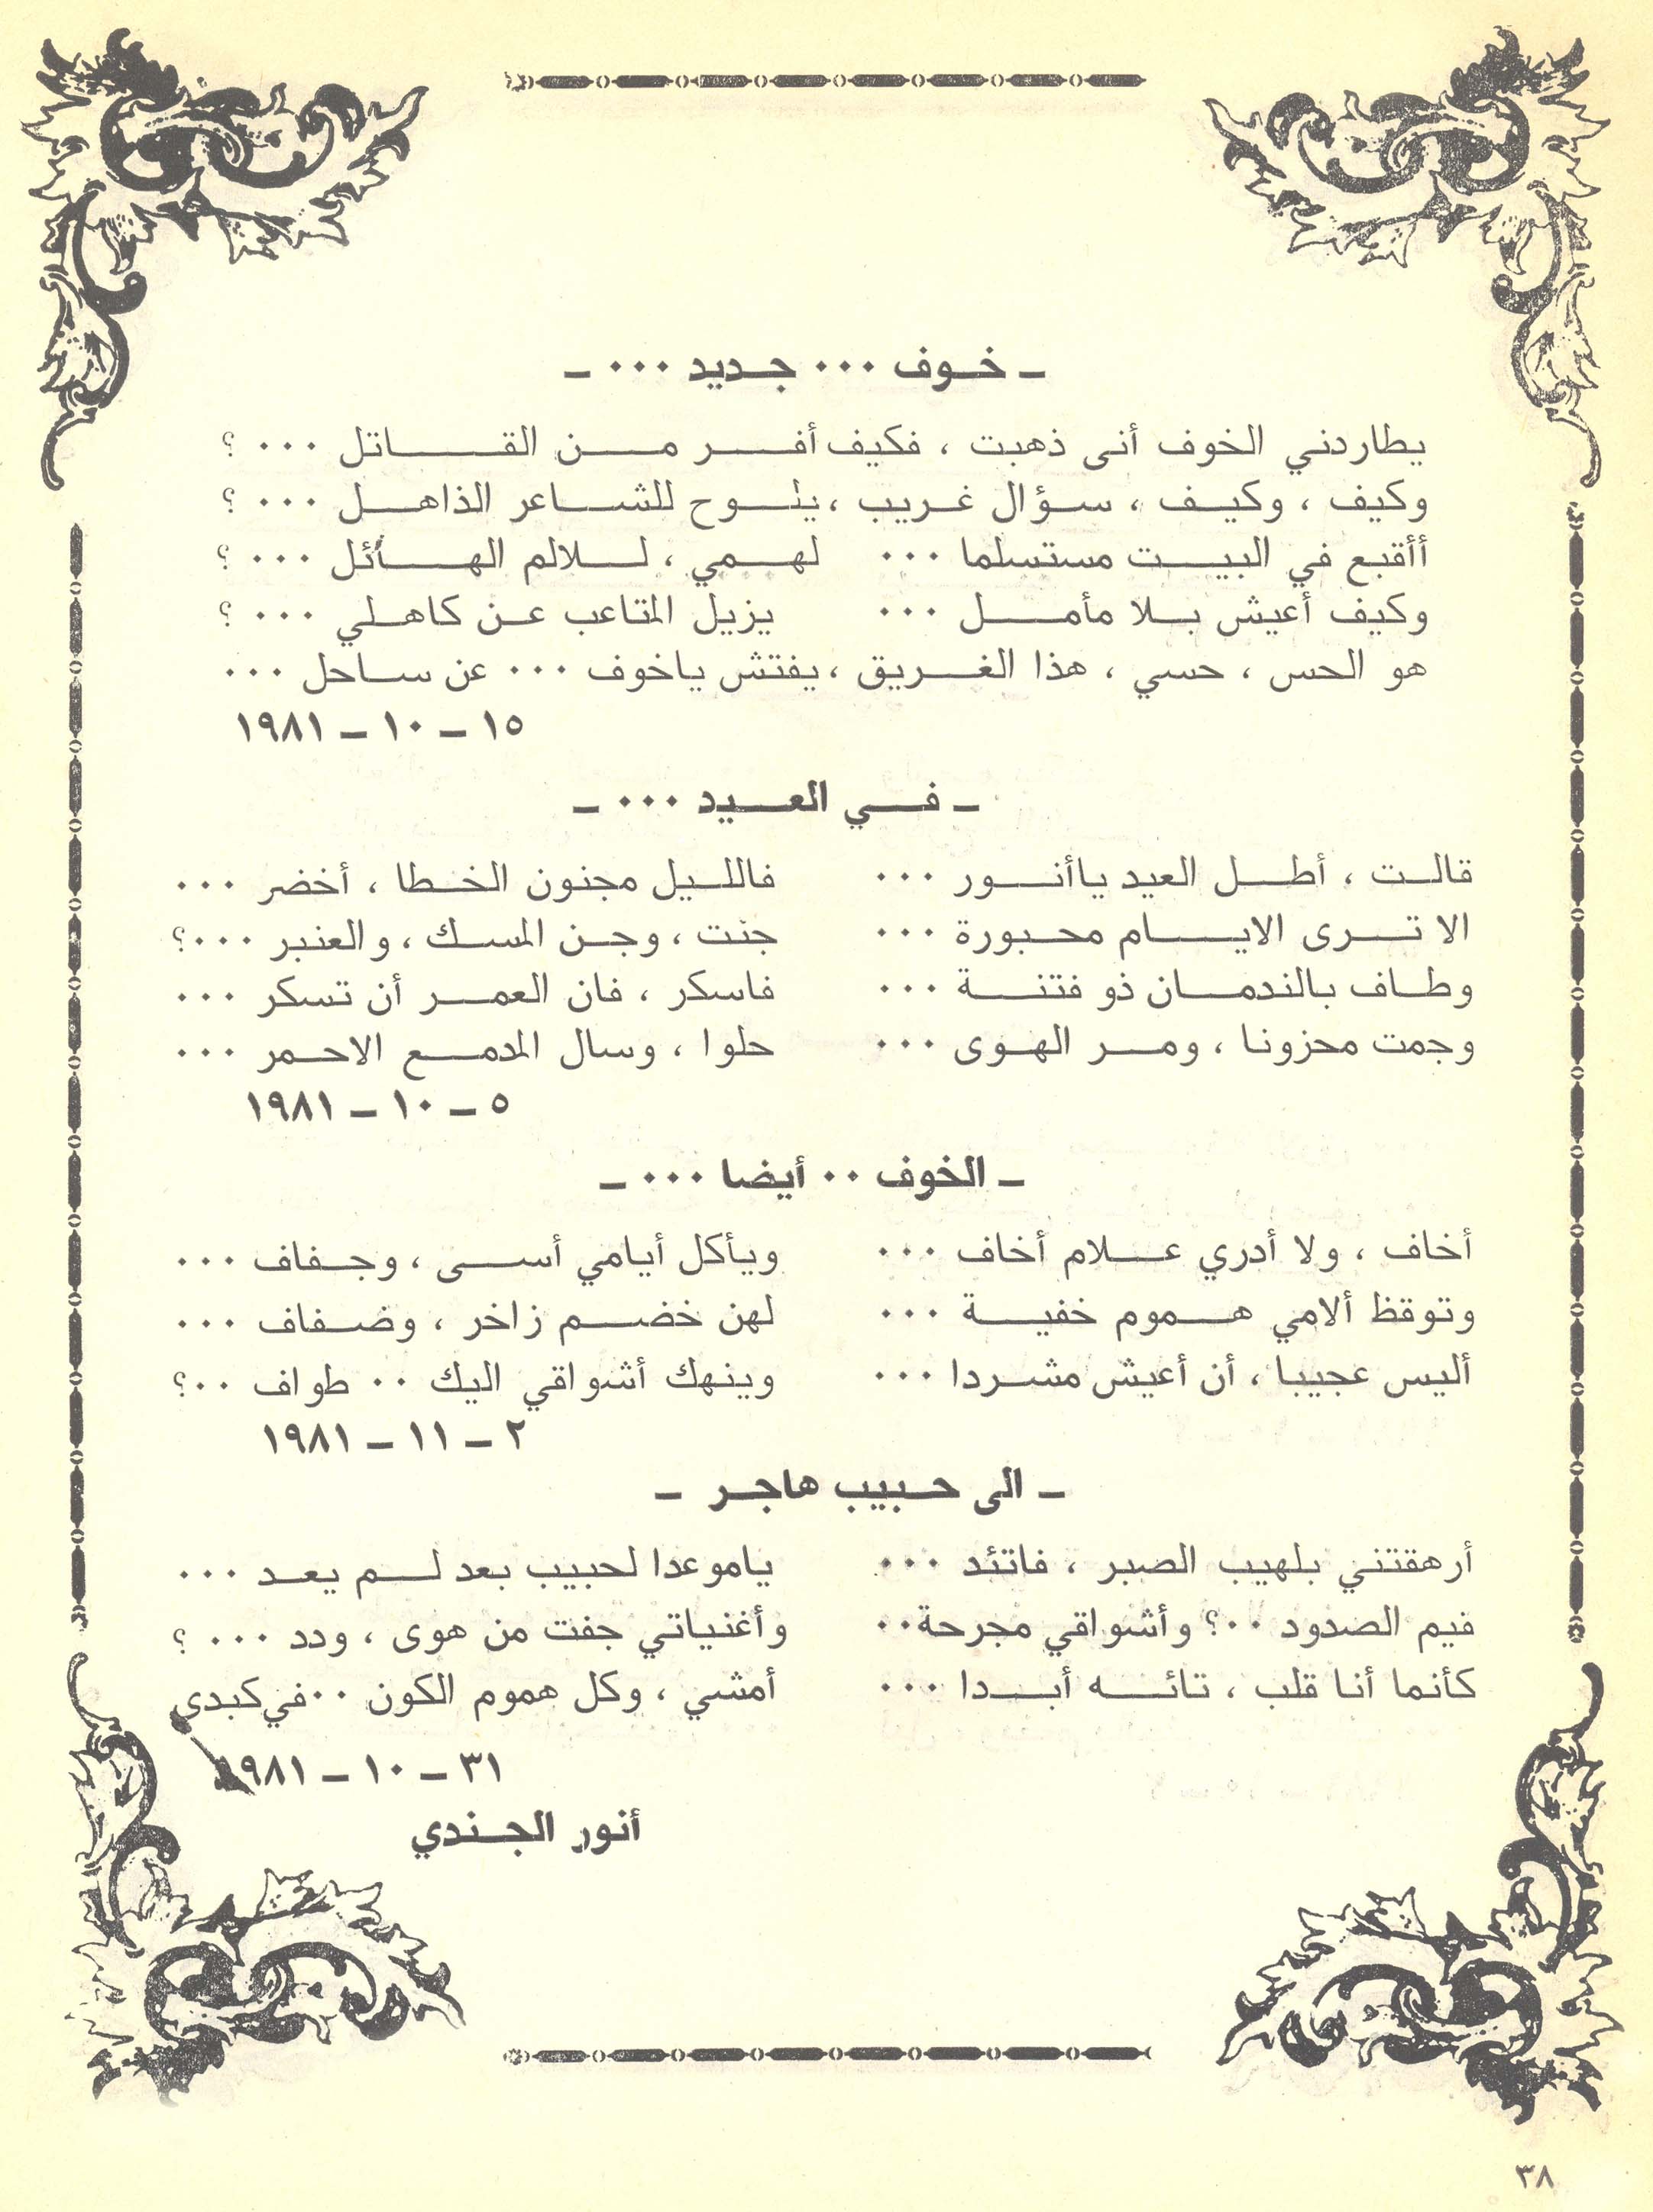 ـ خوف ... جديد ... ـ
يطاردني الخوف أنى ذهبت ، فكيف أفر من القاتل ... ؟
وكيف ، وكيف ، سؤال غريب ، يلوح للشاعر الذاهل ... ؟
أأقبع في البيت مستسلما ... لهمي ، للالم الهائل ... ؟
وكيف أعيش بلا مأمل ... يزيل المتاعب عن كاهلي ... ؟
هو الحس ، حسي ، هذا الغريق ، يفتش ياخوف ... عن ساحل ...
١٥ ـ ١٠ ـ ١٩٨١
ـ في العيد ... ـ
قالت ، أطل العيد ياأنور ... فالليل مجنون الخطا ، أخضر ...
الا ترى الايام محبورة ... جنت ، وجن المسك ، والعنبر ...؟
وطاف بالندمان ذو فتنة ... فاسكر ، فان العمر أن تسكر ...
وجمت محزونا ، ومر الهوى ... حلوا ، وسال المدمع الاحمر ...
٥ ـ ١٠ ـ ١٩٨١
ـ الخوف .. أيضا ... ـ
أخاف ، ولا أدري علام أخاف ... ويأكل أيامي أسى ، وجفاف ...
وتوقظ ألامي هموم خفية ... لهن خضم زاخر ، وضفاف ...
أليس عجيبا ، أن أعيش مشردا ... وينهك أشواقي اليك .. طواف ..؟
٢ ـ ١١ ـ ١٩٨١
ـ الى حبيب هاجر ـ
أرهقتني بلهيب الصبر ، فاتئد ... ياموعدا لحبيب بعد لم يعد ...
فيم الصدود ..؟ وأشواقي مجرحة.. وأغنياتي جفت من هوى ، ودد ... ؟
كأنما أنا قلب ، تائه أبدا ... أمشي ، وكل هموم الكون ..في كبدي
٣١ ـ ١٠ ـ ١٩٨١
أنور الجندي
٣٨